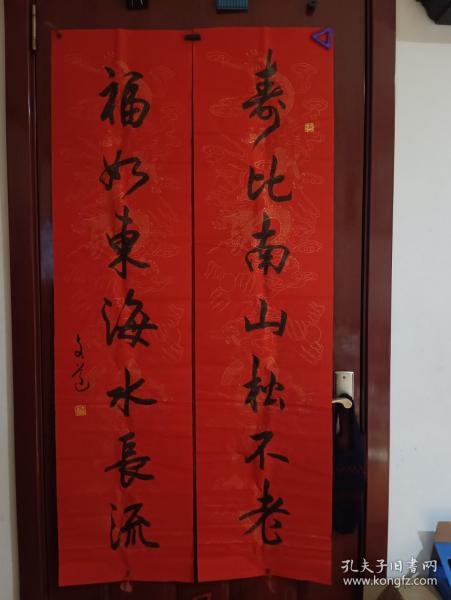 寿比南山松不老
福如東海水長流
文道
孔夫子旧书网
https://www.kongfz.com